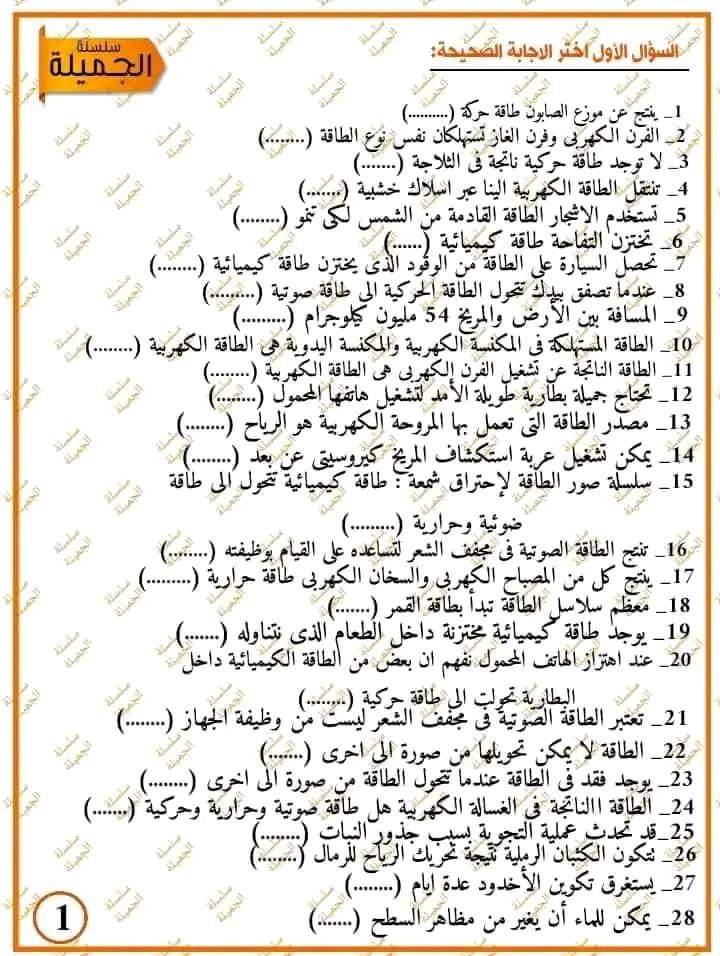 سلسلة
الجميلة
السؤال الأول اختر الاجابة الصحيحة:
1_ ينتج عن موزع الصابون طاقة حركة (..........)
2_ الفرن الكهربى وفرن الغاز تستهلكان نفس نوع الطاقة (........)
3_ لا توجد طاقة حركية ناتجة فى الثلاجة (........)
4_ تنتقل الطاقة الكهربية الينا عبر اسلاك خشبية (.......)
5_ تستخدم الاشجار الطاقة القادمة من الشمس لكى تنمو (........)
6_ تختزن التفاحة طاقة كيميائية (......)
7_ تحصل السيارة على الطاقة من الوقود الذى يختزن طاقة كيميائية (........)
8_ عندما تصفق بيدك تتحول الطاقة الحركية الى طاقة صوتية (.........)
9_ المسافة بين الأرض والمريخ 54 مليون كيلوجرام (.........)
10_ الطاقة المستهلكة فى المكنسة الكهربية والمكنسة اليدوية هى الطاقة الكهربية (........)
11_ الطاقة الناتجة عن تشغيل الفرن الكهربى هى الطاقة الكهربية (........)
12_ تحتاج جميلة بطارية طويلة الأمد لتشغيل هاتفها المحمول (........)
13_ مصدر الطاقة التى تعمل بها المروحة الكهربية هو الرياح (........)
14_ يمكن تشغيل عربة استكشاف المريخ كيروسيتى عن بعد (........)
15_ سلسلة صور الطاقة لإحتراق شمعة : طاقة كيميائية تتحول الى طاقة
ضوئية وحرارية (.........)
16_ تنتج الطاقة الصوتية فى مجفف الشعر لتساعده على القيام بوظيفته (........)
17_ ينتج كل من المصباح الكهربى والسخان الكهربى طاقة حرارية (.........)
18_ معظم سلاسل الطاقة تبدأ بطاقة القمر (.......)
19_ يوجد طاقة كيميائية مختزنة داخل الطعام الذى نتناوله (.......)
20_ عند اهتزاز الهاتف المحمول نفهم ان بعض من الطاقة الكيميائية داخل
البطارية تحولت الى طاقة حركية (........)
21_ تعتبر الطاقة الصوتية فى مجفف الشعر ليست من وظيفة الجهاز (........)
22_ الطاقة لا يمكن تحويلها من صورة الى اخرى (.......)
23_ يوجد فقد فى الطاقة عندما تتحول الطاقة من صورة الى اخرى (........)
24_ الطاقة االناتجة فى الغسالة الكهربية هل طاقة صوتية وحرارية وحركية (.......)
25_قد تحدث عملية التجوية بسبب جذور النبات (........)
26_ تتكون الكثبان الرملية نتيجة تحريك الرياح للرمال (........)
27_ يستغرق تكوين الأخدود عدة ايام (........)
28_ يمكن للماء أن يغير من مظاهر السطح (.......)
1